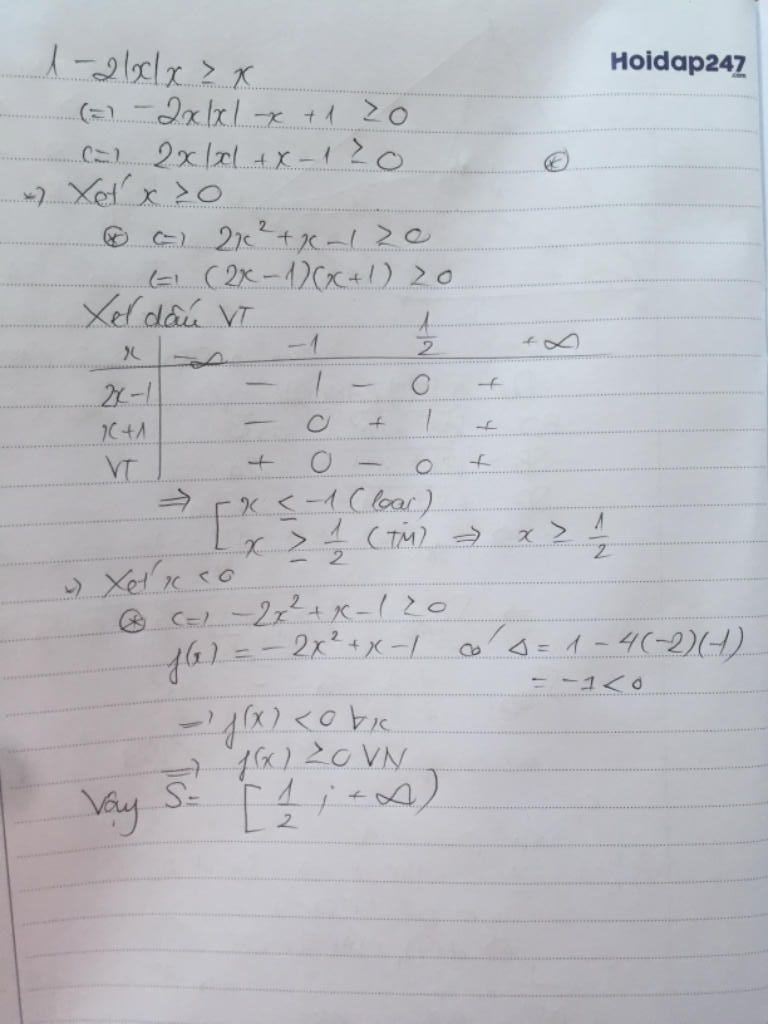 Hoidap247
.com
1 - 2|x|x ≥ x
(=) -2x|x| - x + 1 ≥ 0
(=) 2x|x| + x - 1 ≥ 0 (*)
*) Xét x ≥ 0
(*) (=) 2x² + x - 1 ≥ 0
(=) (2x - 1)(x + 1) ≥ 0
Xét dấu VT
x | -∞ -1 1/2 +∞
2x-1 | - | - 0 +
x+1 | - 0 + | +
VT | + 0 - 0 +
=> [ x ≤ -1 (loại)
x ≥ 1/2 (TM) => x ≥ 1/2
*) Xét x < 0
(*) (=) -2x² + x - 1 ≥ 0
f(x) = -2x² + x - 1 có Δ = 1 - 4(-2)(-1)
= -7 < 0
=> f(x) < 0 ∀x
=> f(x) ≥ 0 VN
Vậy S = [1/2 ; +∞)